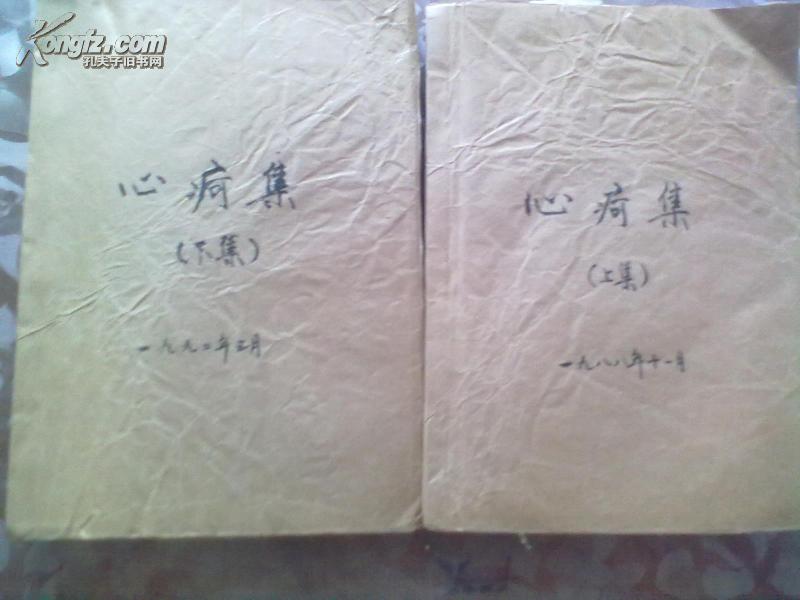 Kongfz.com
孔夫子旧书网
心痾集
(下集)
一九九二年三月
心痾集
(上集)
一九八八年十一月